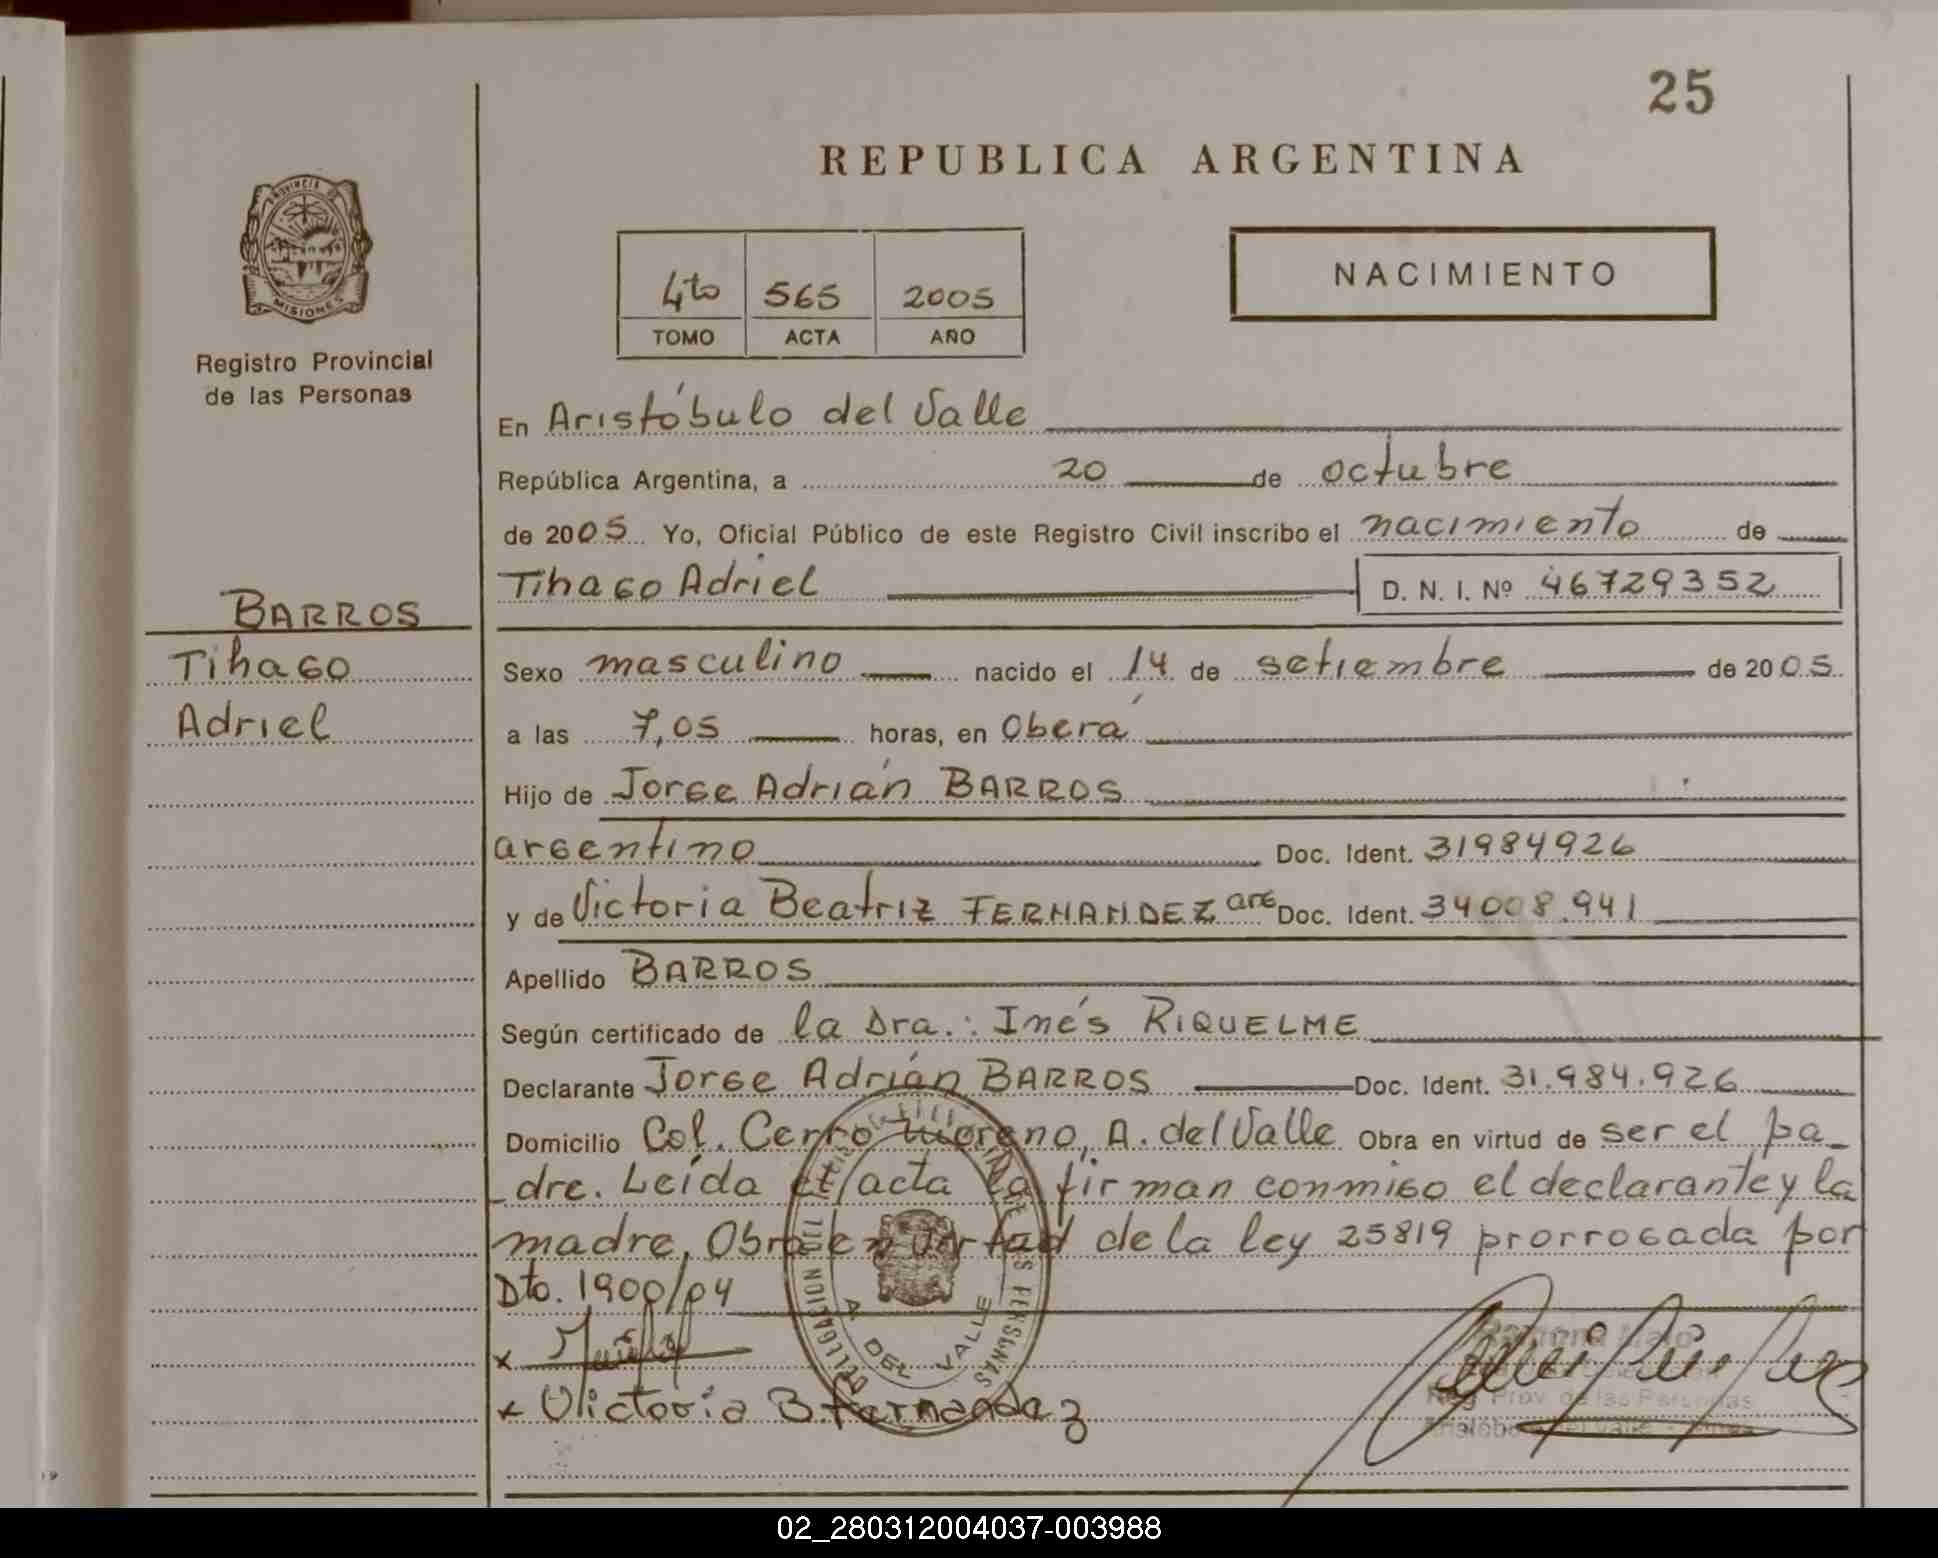 25
REPUBLICA ARGENTINA
PROVINCIA DE
MISIONES
Registro Provincial
de las Personas
4to 565 2005
TOMO ACTA AÑO
NACIMIENTO
En Aristóbulo del Valle
República Argentina, a 20 de octubre
de 2005 Yo, Oficial Público de este Registro Civil inscribo el nacimiento de
Tihago Adriel D. N. I. Nº 46729352
BARROS
Tihago
Adriel
Sexo masculino nacido el 14 de setiembre de 2005
a las 7,05 horas, en Oberá
Hijo de Jorge Adrián BARROS
argentino Doc. Ident. 31984926
y de Victoria Beatriz FERNANDEZ arg Doc. Ident. 34008.941
Apellido BARROS
Según certificado de la Dra.: Inés RIQUELME
Declarante Jorge Adrián BARROS Doc. Ident. 31.984.926
Domicilio Col. Cerro Moreno, A. del Valle Obra en virtud de ser el pa-
-dre. Leída el acta la firman conmigo el declarante y la
madre. Obra en virtud de la ley 25819 prorrogada por
Dto. 1900/04
x
x Victoria B fernandez
A DEL VALLE
Reg Prov de las Personas
02_280312004037-003988